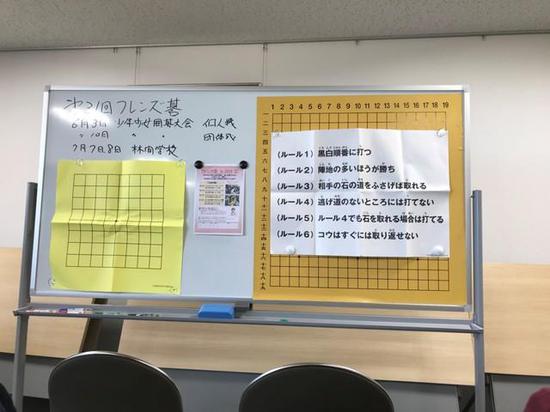 第1回フレンズ碁
6月3日 少年少女囲碁大会 個人戦
〃10日 〃 〃 団体戦
7月7日8日 林間学校
1 2 3 4 5 6 7 8 9 10 11 12 13 14 15 16 17 18 19
一
二
三
四
五
六
七
八
九
十
十一
十二
十三
十四
十五
十六
十七
十八
十九
(ルール1) 黒白順番に打つ
(ルール2) 陣地の多いほうが勝ち
(ルール3) 相手の石の道をふさげば取れる
(ルール4) 逃げ道のないところには打てない
(ルール5) ルール4でも石を取れる場合は打てる
(ルール6) コウはすぐには取り返せない